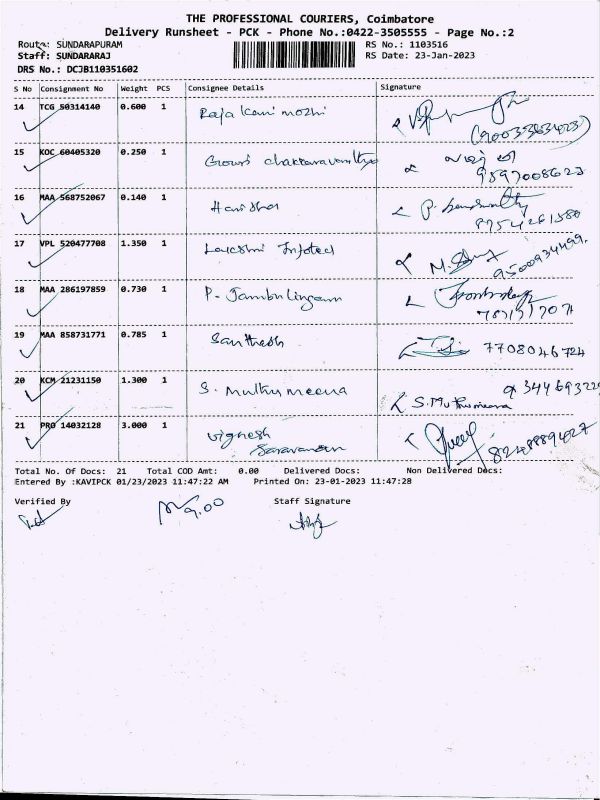 THE PROFESSIONAL COURIERS, Coimbatore
Delivery Runsheet - PCK - Phone No.:0422-3505555 - Page No.:2
Route: SUNDARAPURAM RS No.: 1103516
Staff: SUNDARARAJ RS Date: 23-Jan-2023
DRS No.: DCJB110351602
S No Consignment No Weight PCS Consignee Details Signature
14 TCG 50314140 0.600 1 Raja Kani mozhi
15 KOC 60405320 0.250 1 Gowri chakkaravarthy
9597008623
16 MAA 568752067 0.140 1 Harishar
8754261580
17 VPL 520477708 1.350 1 Lakshmi Infotech
9500934499.
18 MAA 286197859 0.730 1 P. Jambulingam
19 MAA 858731771 0.785 1 Santhosh 7708046724
20 KCM 21231150 1.300 1 S. Muthumeena
S.Muthumeena
21 PRO 14032128 3.000 1 Vignesh
Saravanan
Total No. Of Docs: 21 Total COD Amt: 0.00 Delivered Docs: Non Delivered Docs:
Entered By :KAVIPCK 01/23/2023 11:47:22 AM Printed On: 23-01-2023 11:47:28
Verified By 9.00 Staff Signature